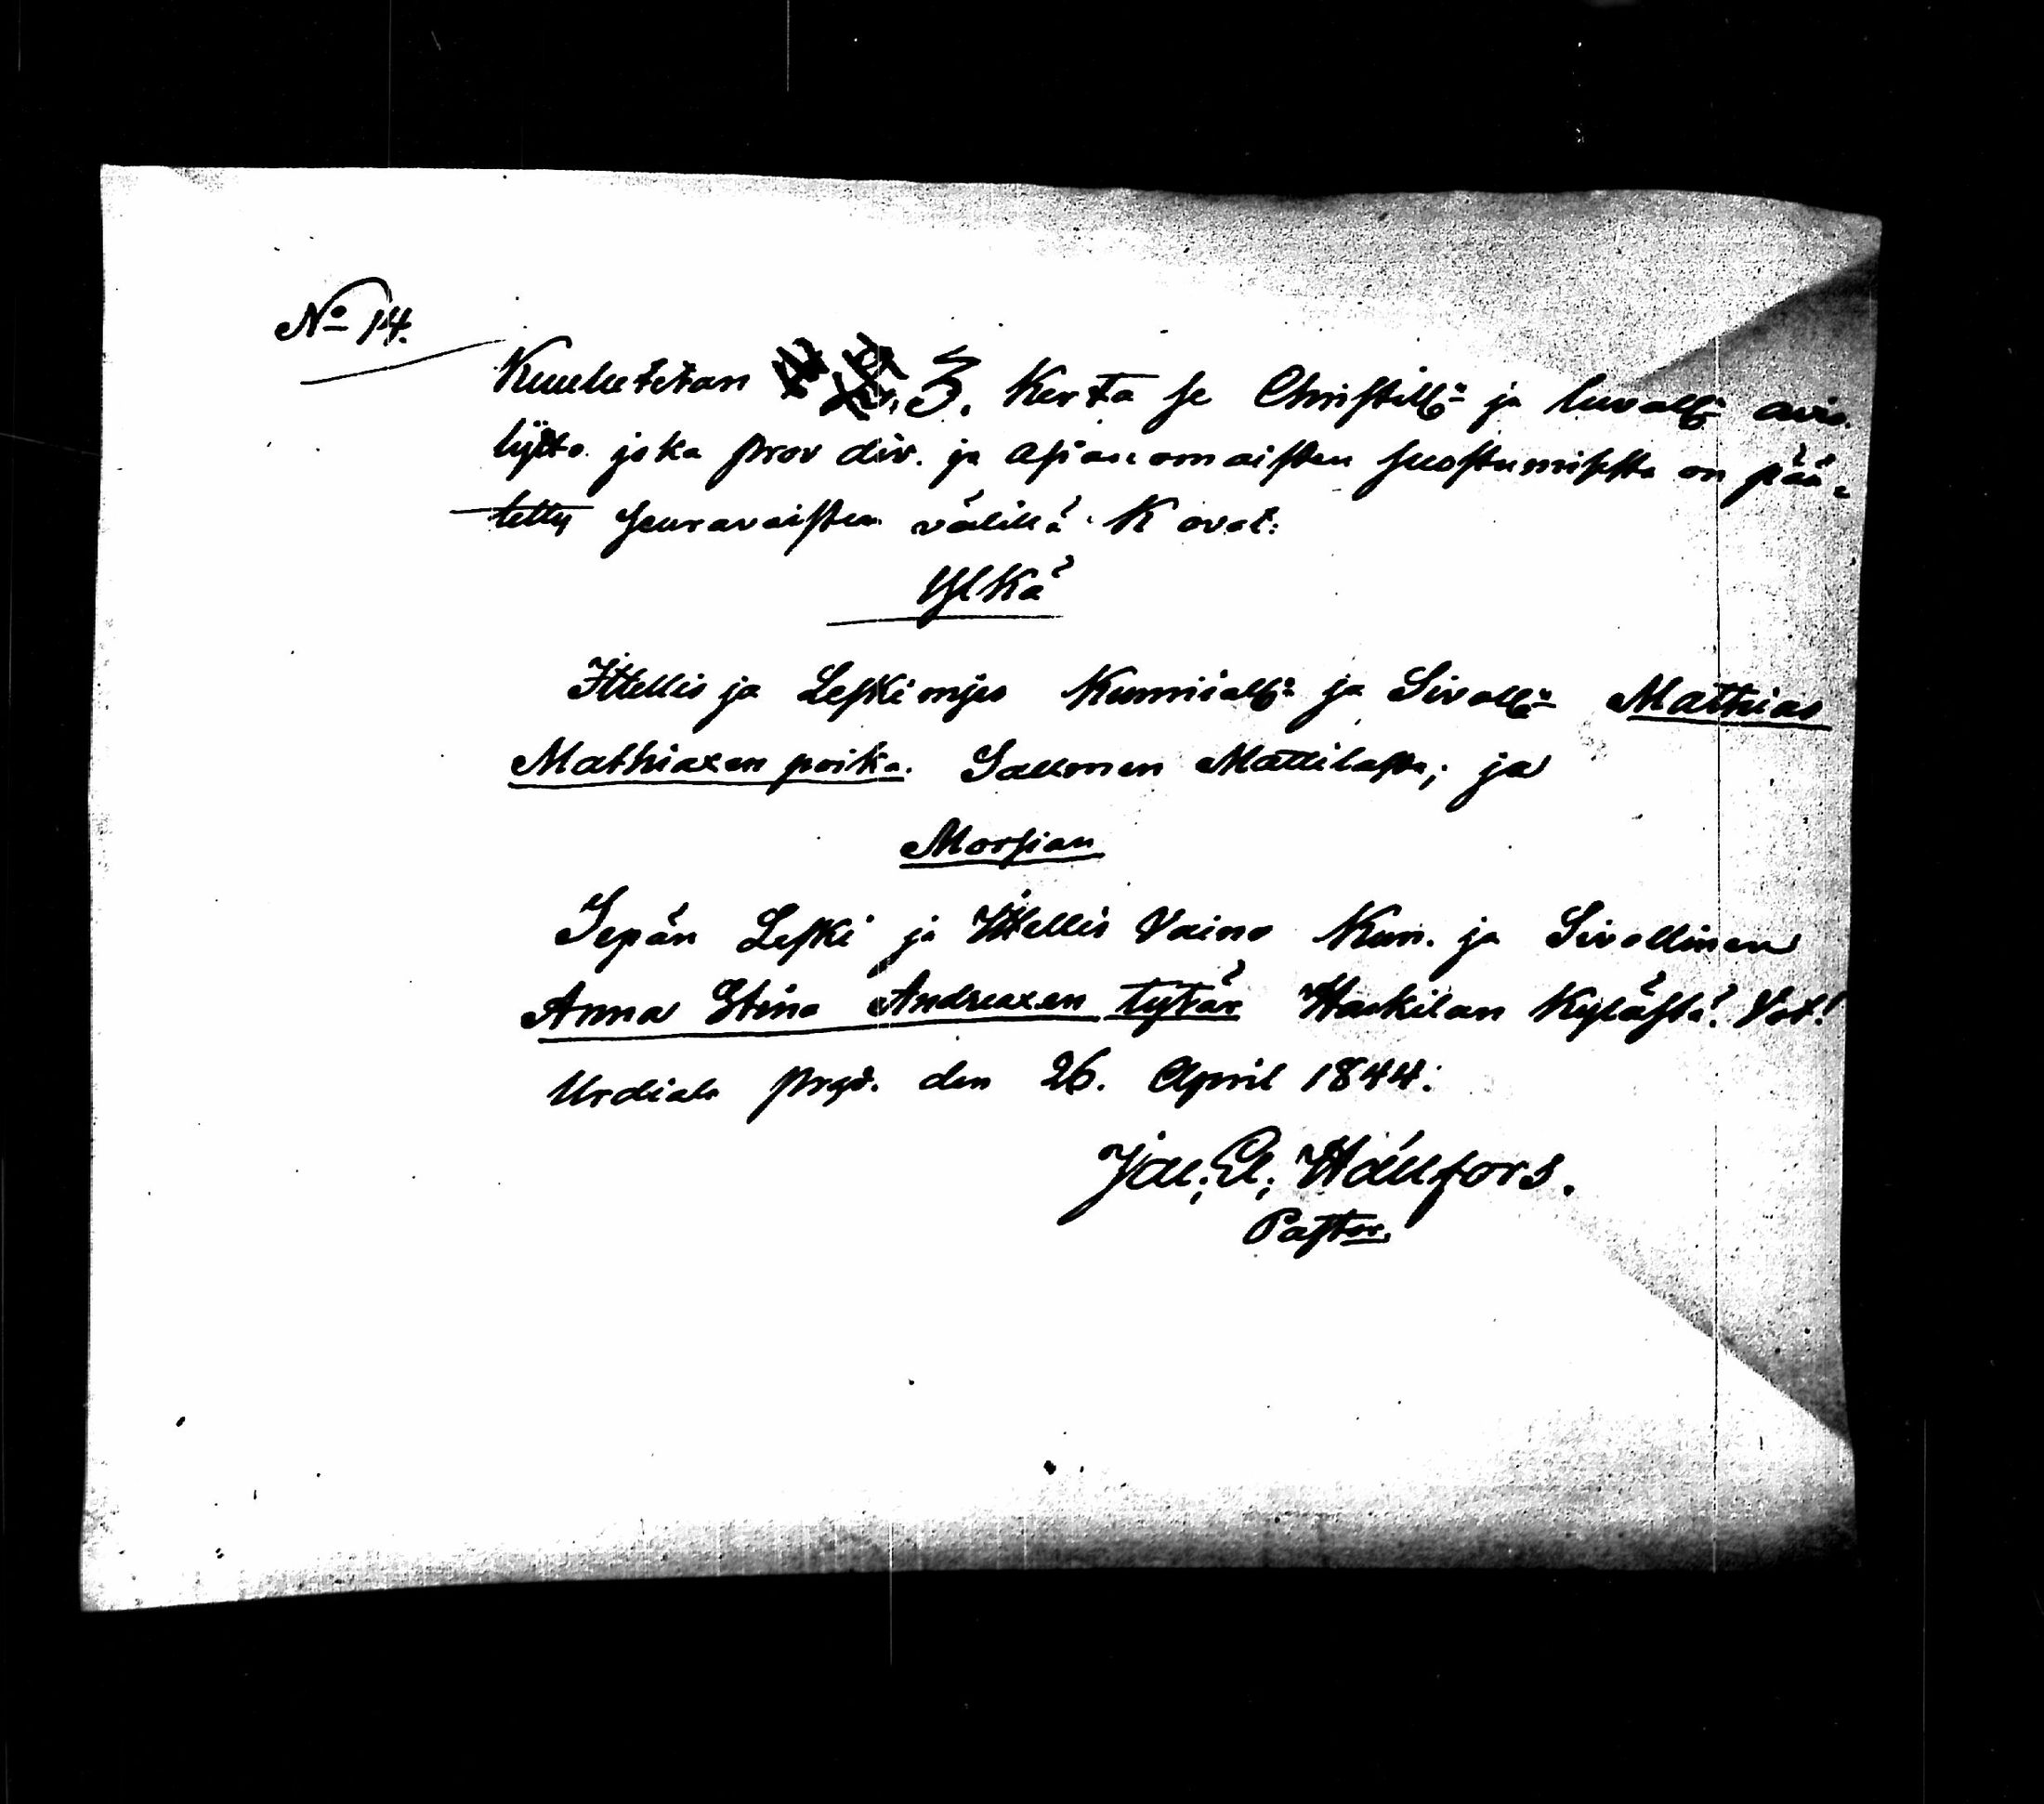 No 14.
Kuulutetan 3. Kerta se Christill: ja luvall: avio-
lijtto joka prov div. ja asianomaisten suostumisesta on pää-
tetty seuravaisten välillä. K ovat:
Ylkä
Ittellis ja Leskimjes Kunniall: ja Sivell: Mathias
Mathiaxen poika Mattilasta; ja
Morsian
Sepän Leski ja Ittellis Vaimo Kun. ja Sivellinen
Anna Stina Andreaxen tytär Honkilan Kylästä. Vot!
Urdiala prgd. den 26. April 1844.
Jac. Ed. Hällfors.
Pastor.